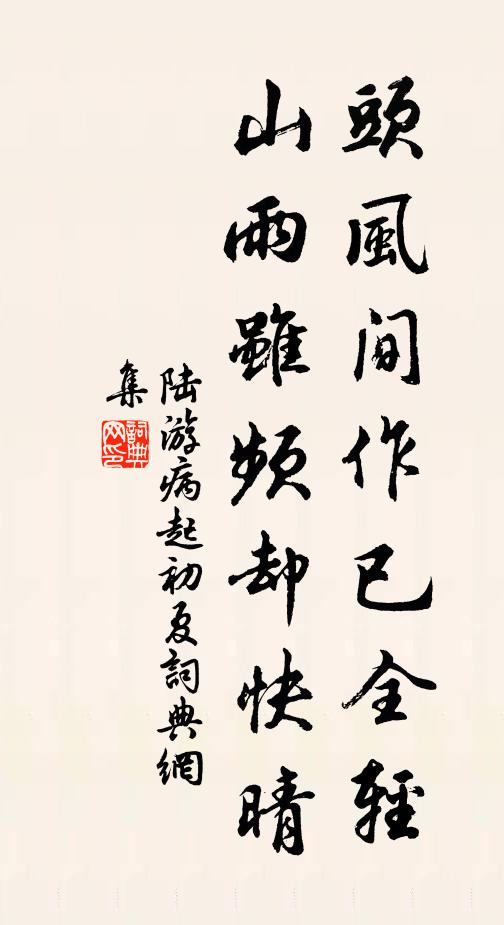 頭風間作已全輕
山雨雖頻却快晴
陆游病起初夏詞典網
集
詞典
网印